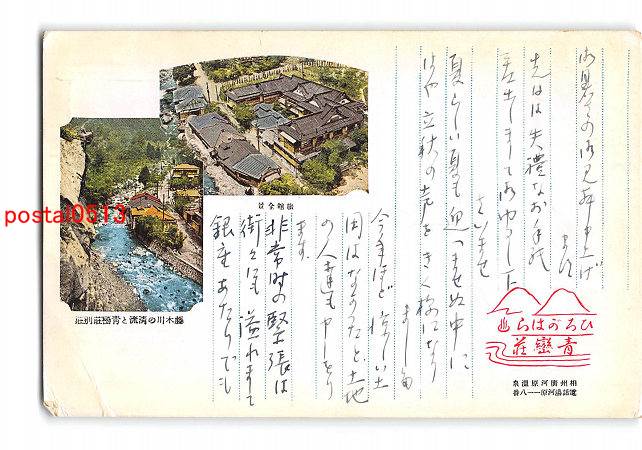 お暑さのお見舞申上げ
ます
先日は失禮なお手紙
差出しましておゆるし下
さいませ
夏らしい夏も迎へませぬ中に
はや立秋の声をきく様になり
ました
今年ほど
土地
の人達も申しをり
ます
非常時の緊張は
街々にも溢れまして
銀座あたりでも
旅館全景
藤木川の清流と青巒荘別荘
ひろがはらゆ
青巒荘
相州廣河原温泉
電話湯河原一一八番
postal0513